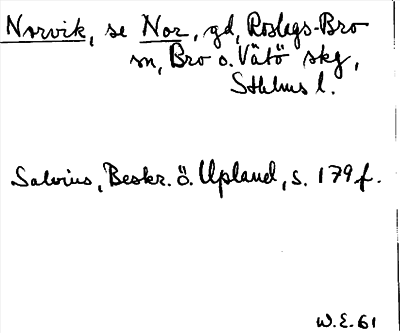 Norvik, se Nor, gd, Roslags-Bro
sn, Bro o. Vätö skg,
Sthlms l.
Salvius, Beskr. ö. Upland, s. 179 f.
W.E. 61